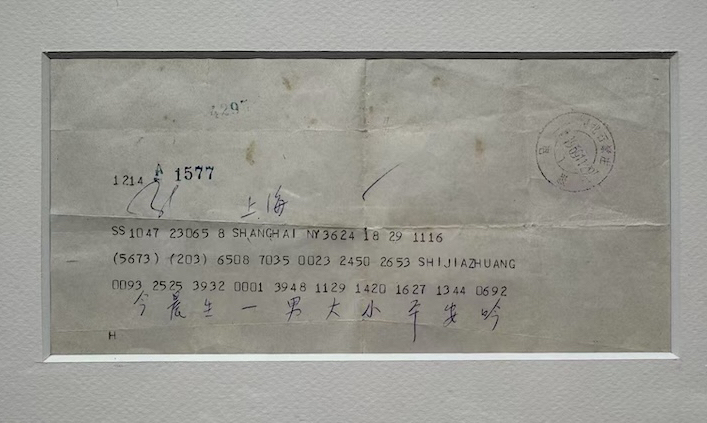 4297
1214 A 1577
上海
SS1047 23065 8 SHANGHAI NY3624 18 29 1116
(5673) (203) 6508 7035 0023 2450 2653 SHIJIAZHUANG
0093 2525 3932 0001 3948 1129 1420 1627 1344 0692
今晨生一男大小平安吟
H